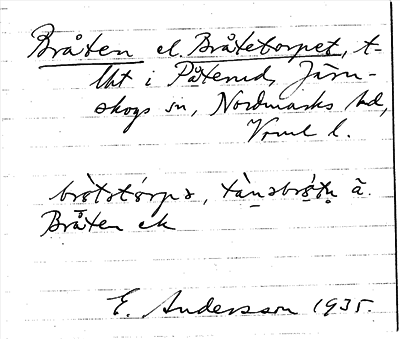 Bråten el. Bråtetorpet, t-
lht i Påterud, Järn-
skogs sn, Nordmarks hd,
Verml l.
bròtətórpə, tànəbrǿtn̥ ä
Bråten ek
E. Andersson 1935.